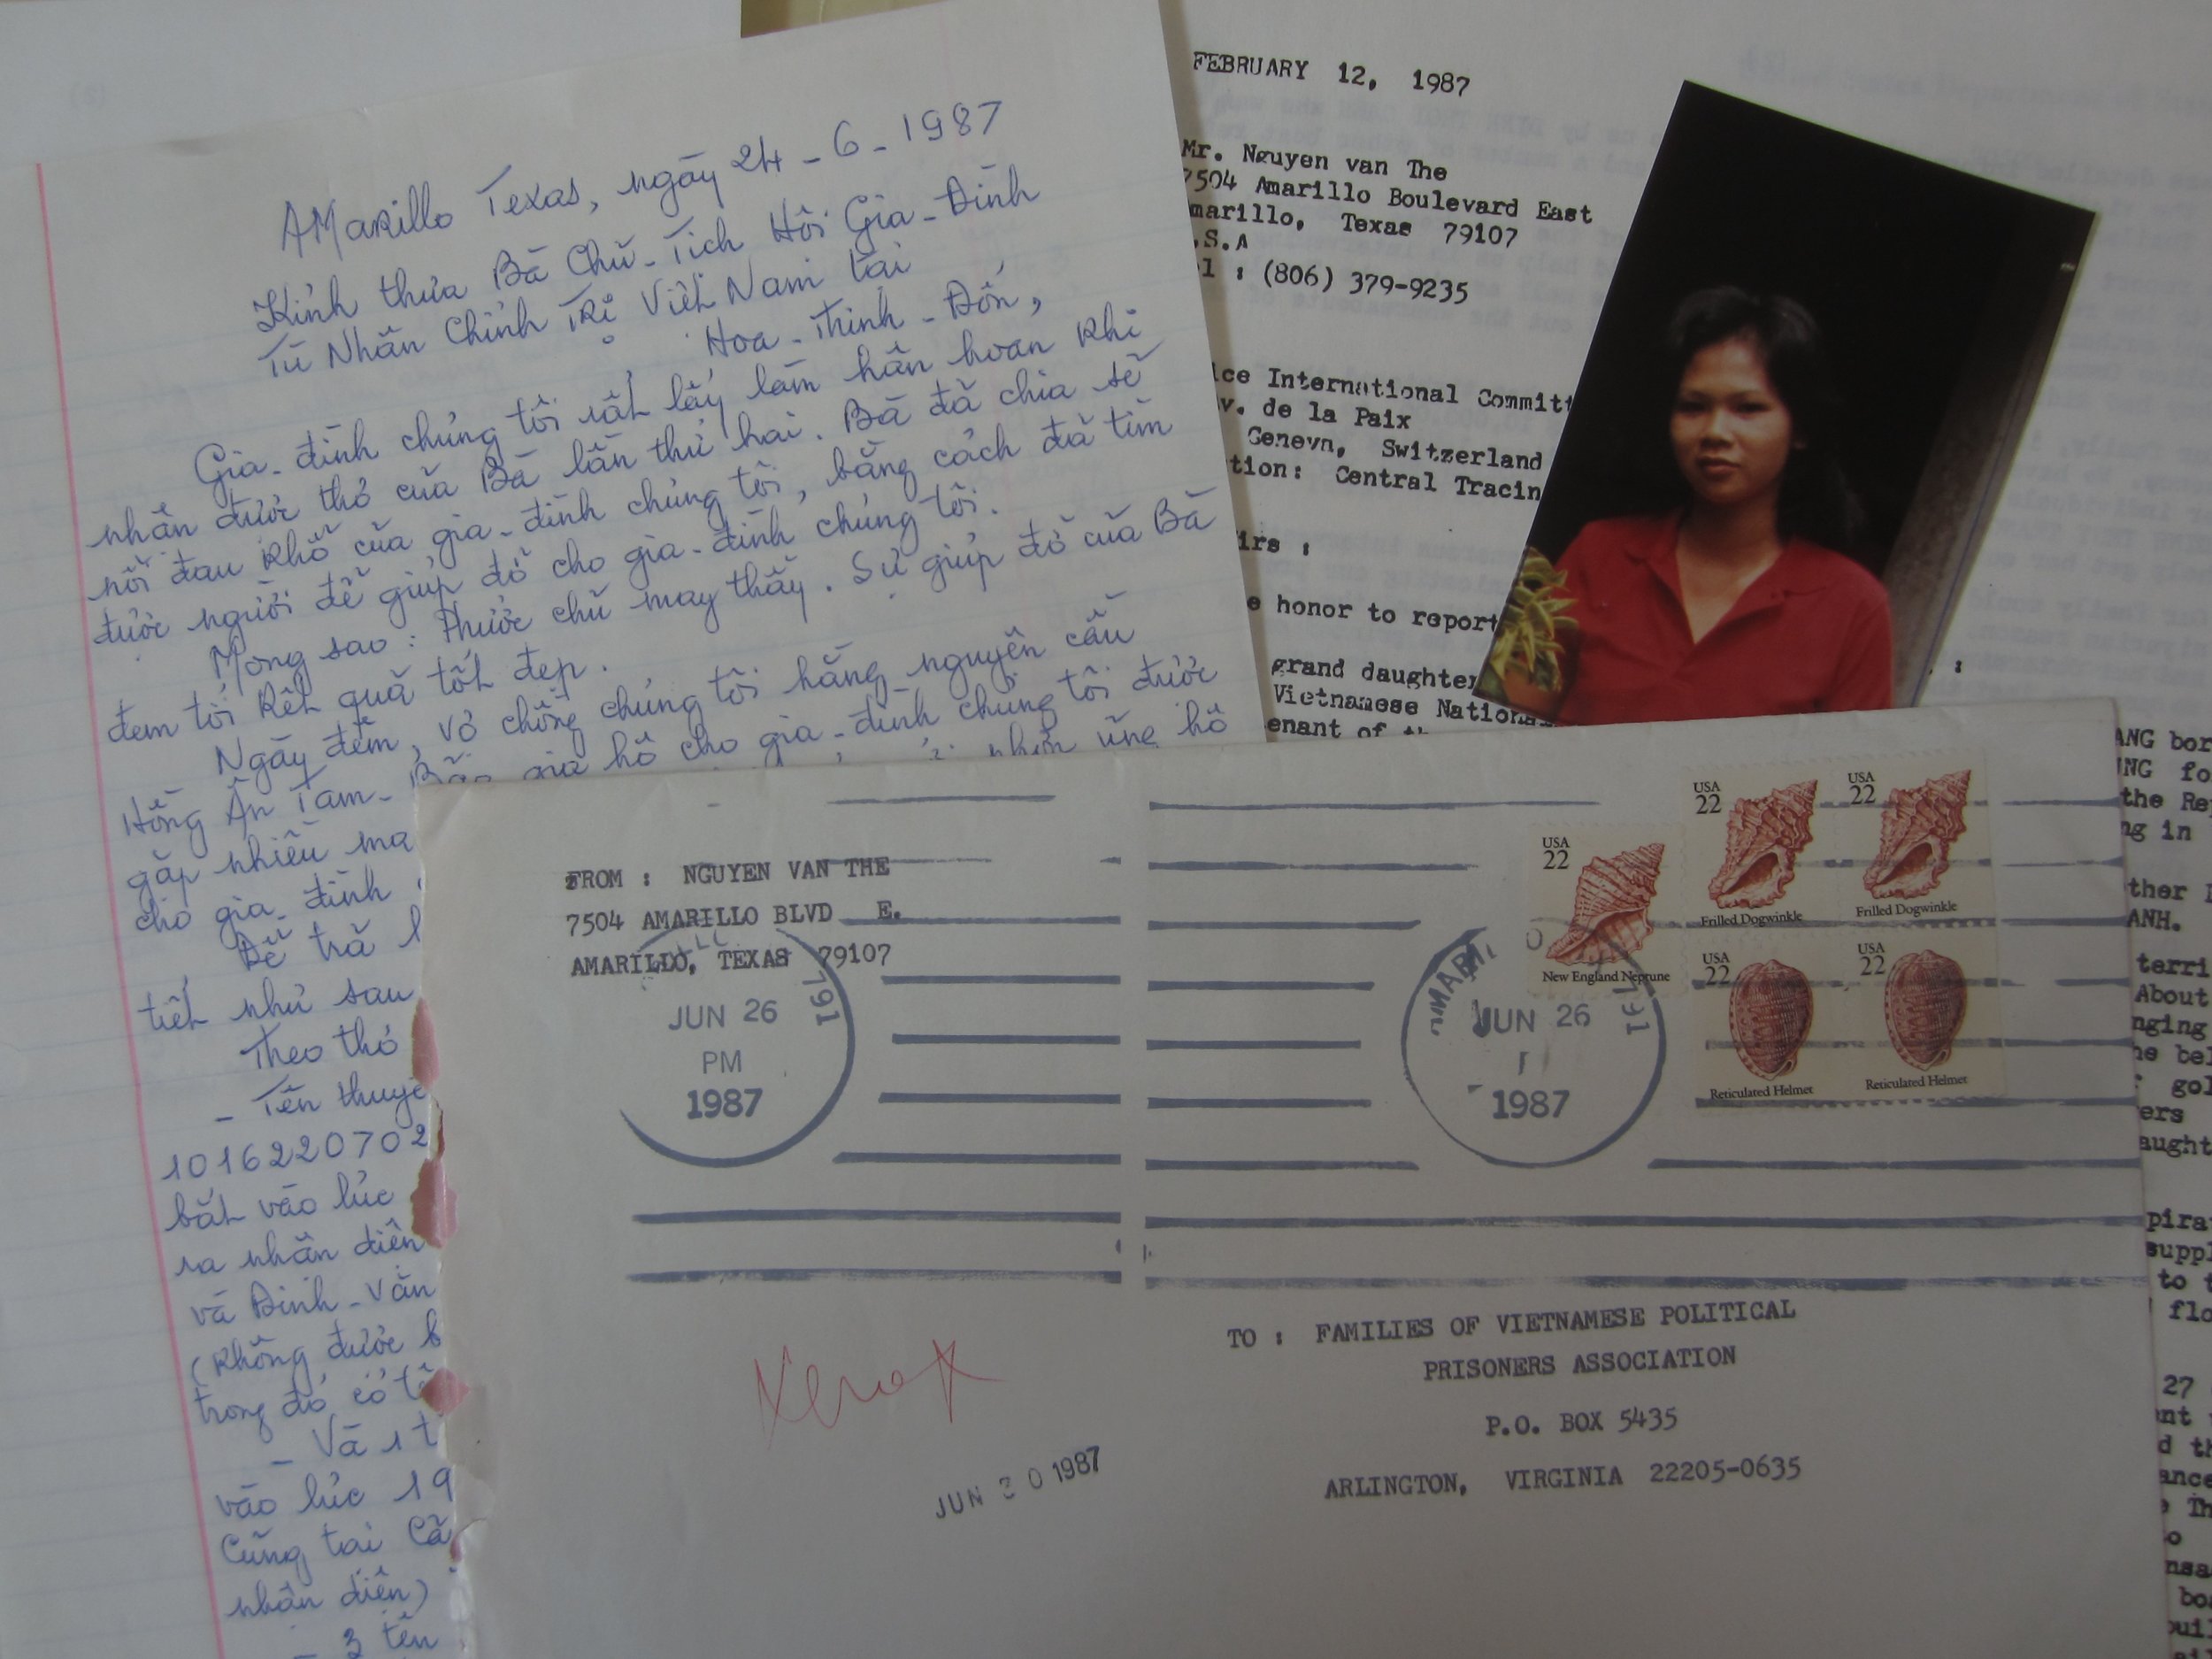 AMarillo Texas, ngày 24-6-1987
Kính thưa Bà Chủ-Tịch Hội Gia-Đình
Tù Nhân Chính Trị Việt Nam tại
Hoa-Thịnh-Đốn,
Gia-đình chúng tôi rất lấy làm hân hoan khi
nhận được thơ của Bà lần thứ hai. Bà đã chia sẽ
nỗi đau khổ của gia-đình chúng tôi, bằng cách đã tìm
được người để giúp đỡ cho gia-đình chúng tôi.
Mong sao: Phước chủ may thầy. Sự giúp đỡ của Bà
đem tới kết quả tốt đẹp.
Ngày đêm, vợ chồng chúng tôi hằng nguyện cầu
Hồng Ân Tam-Bảo gia hộ cho gia-đình chúng tôi được
gặp nhiều ma
cho gia đình
Để trả
tiết như sau
Theo thơ
- Tên thuyề
1016220702
bắt vào lúc
ra nhân diện
và Đinh-Văn
(không được b
trong đó có
- Và 1 t
vào lúc 19
Cũng tại
nhân diện)
- 3 tên
FEBRUARY 12, 1987
Mr. Nguyen van The
7504 Amarillo Boulevard East
marillo, Texas 79107
.S.A
l : (806) 379-9235
ice International Committ
v. de la Paix
Genevn, Switzerland
tion: Central Tracin
irs :
e honor to report
:
grand daughter
Vietnamese Nationa
enant of
ANG bor
NG fo
the Re
ng in
ther
ANH.
terri
About
nging
he bel
gol
ers
aught
pira
suppl
to t
flo
27
nt
d th
ance
Th
o
nsa
boa
uil
FROM : NGUYEN VAN THE
7504 AMARILLO BLVD E.
AMARILLO, TEXAS 79107
791
JUN 26
PM
1987
AMARI
791
JUN 26
1987
USA
22
New England Neptune
USA
22
Frilled Dogwinkle
USA
22
Frilled Dogwinkle
USA
22
Reticulated Helmet
USA
22
Reticulated Helmet
Xerox
JUN 30 1987
TO : FAMILIES OF VIETNAMESE POLITICAL
PRISONERS ASSOCIATION
P.O. BOX 5435
ARLINGTON, VIRGINIA 22205-0635